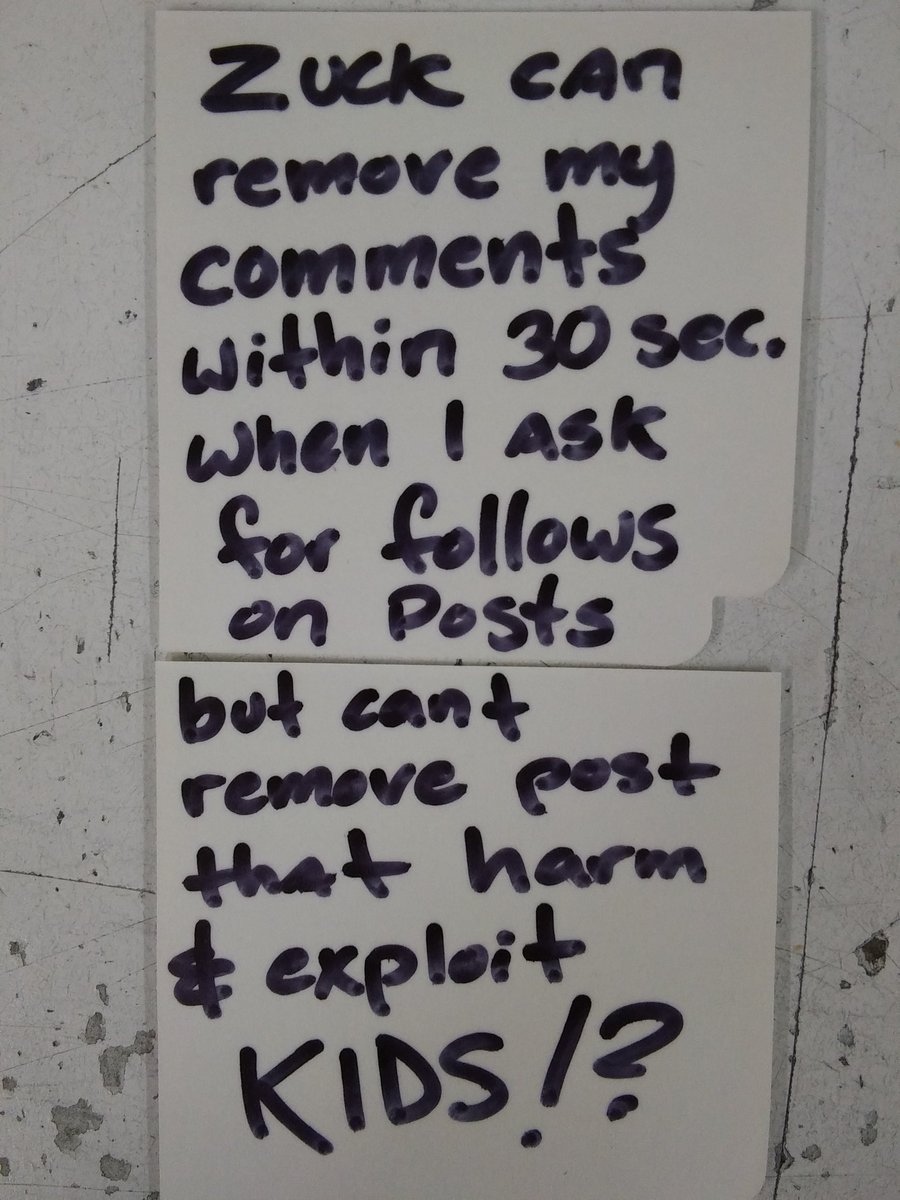 Zuck can
remove my
comments
within 30 sec.
when I ask
for follows
on Posts
but cant
remove post
that harm
& exploit
KIDS!?